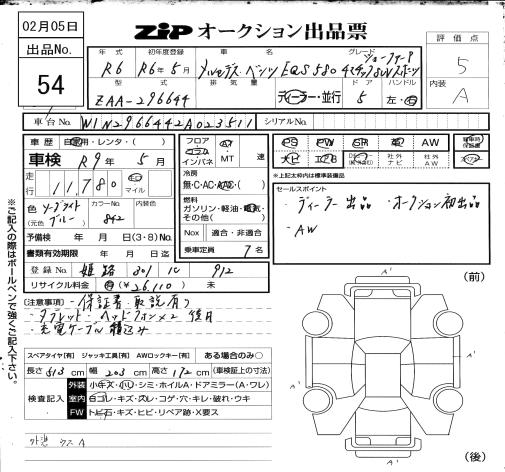 02月05日
ZIP オークション出品票
出品No.
54
年式 初年度登録 車名 グレード
R6 R6年5月 メルセデス・ベンツ EQS 580 4マチック SUV スポーツ
型式 排気量 ドア ハンドル
ZAA-296644 ディーラー・並行 5 左・右
評価点
5
内装
A
車台No. W1N2966442A023511 シリアルNo.
車歴 自家用・レンタ・( )
車検 R9年5月
走行 11,780 km マイル
色 ソーダライトブルー カラーNo. 842 内装色
(元色)
予備検 年 月 日(3・8)No.
書類有効期限 年 月 日迄
登録No. 姫路 301 912
リサイクル料金 済 (¥26,110) 未
フロア コラム インパネ AT MT 速
冷房
無・C・AC・AAC・( )
燃料
ガソリン・軽油・電気・その他( )
Nox 適合・非適合
乗車定員 7名
PS PW SR 革 AW
ナビ TV 社外ナビ 社外AW
*上記太枠内は標準装備品
セールスポイント
・ディーラー出品 ・オークション初出品
・AW
(注意事項)・保証書・取説有り
・タブレット・ヘッドフォン×2 後日
・充電ケーブル積込み
※ご記入の際はボールペンで強くご記入下さい。
スペアタイヤ[有] ジャッキ工具[有] AWロックキー[有] ある場合のみ○
長さ 513 cm 幅 203 cm 高さ 172 cm (車検証上の寸法)
検査記入
外装 小キズ・凹・シミ・ホイルA・ドアミラー(A・ワレ)
室内 ヨゴレ・キズ・スレ・コゲ・穴・キレ・破れ・ウキ
FW トビ石・キズ・ヒビ・リペア跡・X要ス
A'
(前)
A'
A'
(後)